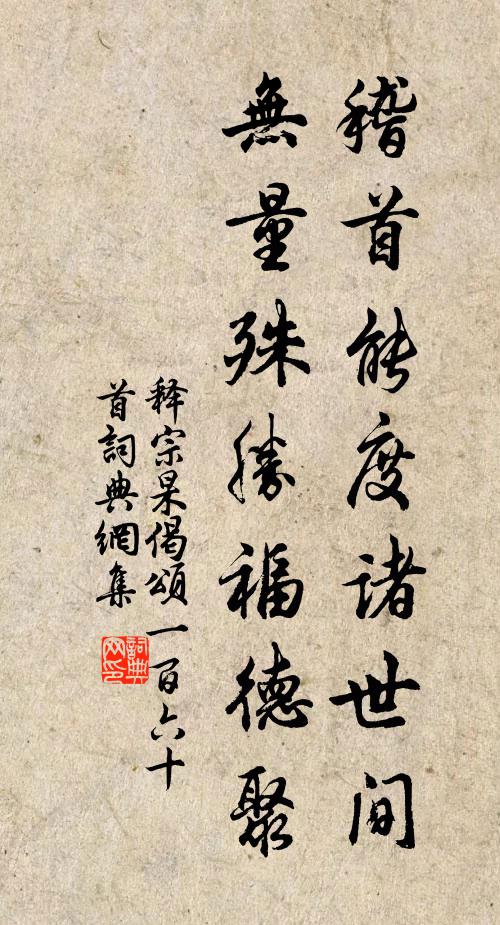 稽首能度诸世间
無量殊勝福德聚
释宗杲偈頌一百六十
首詞典網集
詞典网印